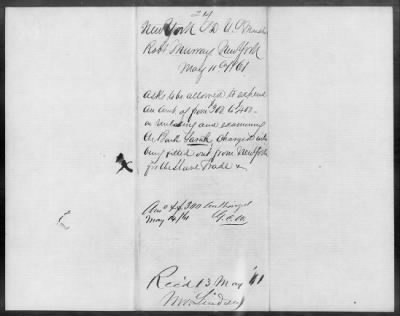 24
New York S D U.S Marshal
Robt Murray New York
May 11th /61
asks to be allowed to expend
an amt. of from 300 to 400
in unlading and examining
the Bark Sarah, charged with
being fitted out from New York
for the Slave Trade &
Ansd $300
May 14/61 G.C.W.
Rec'd 13 May '61